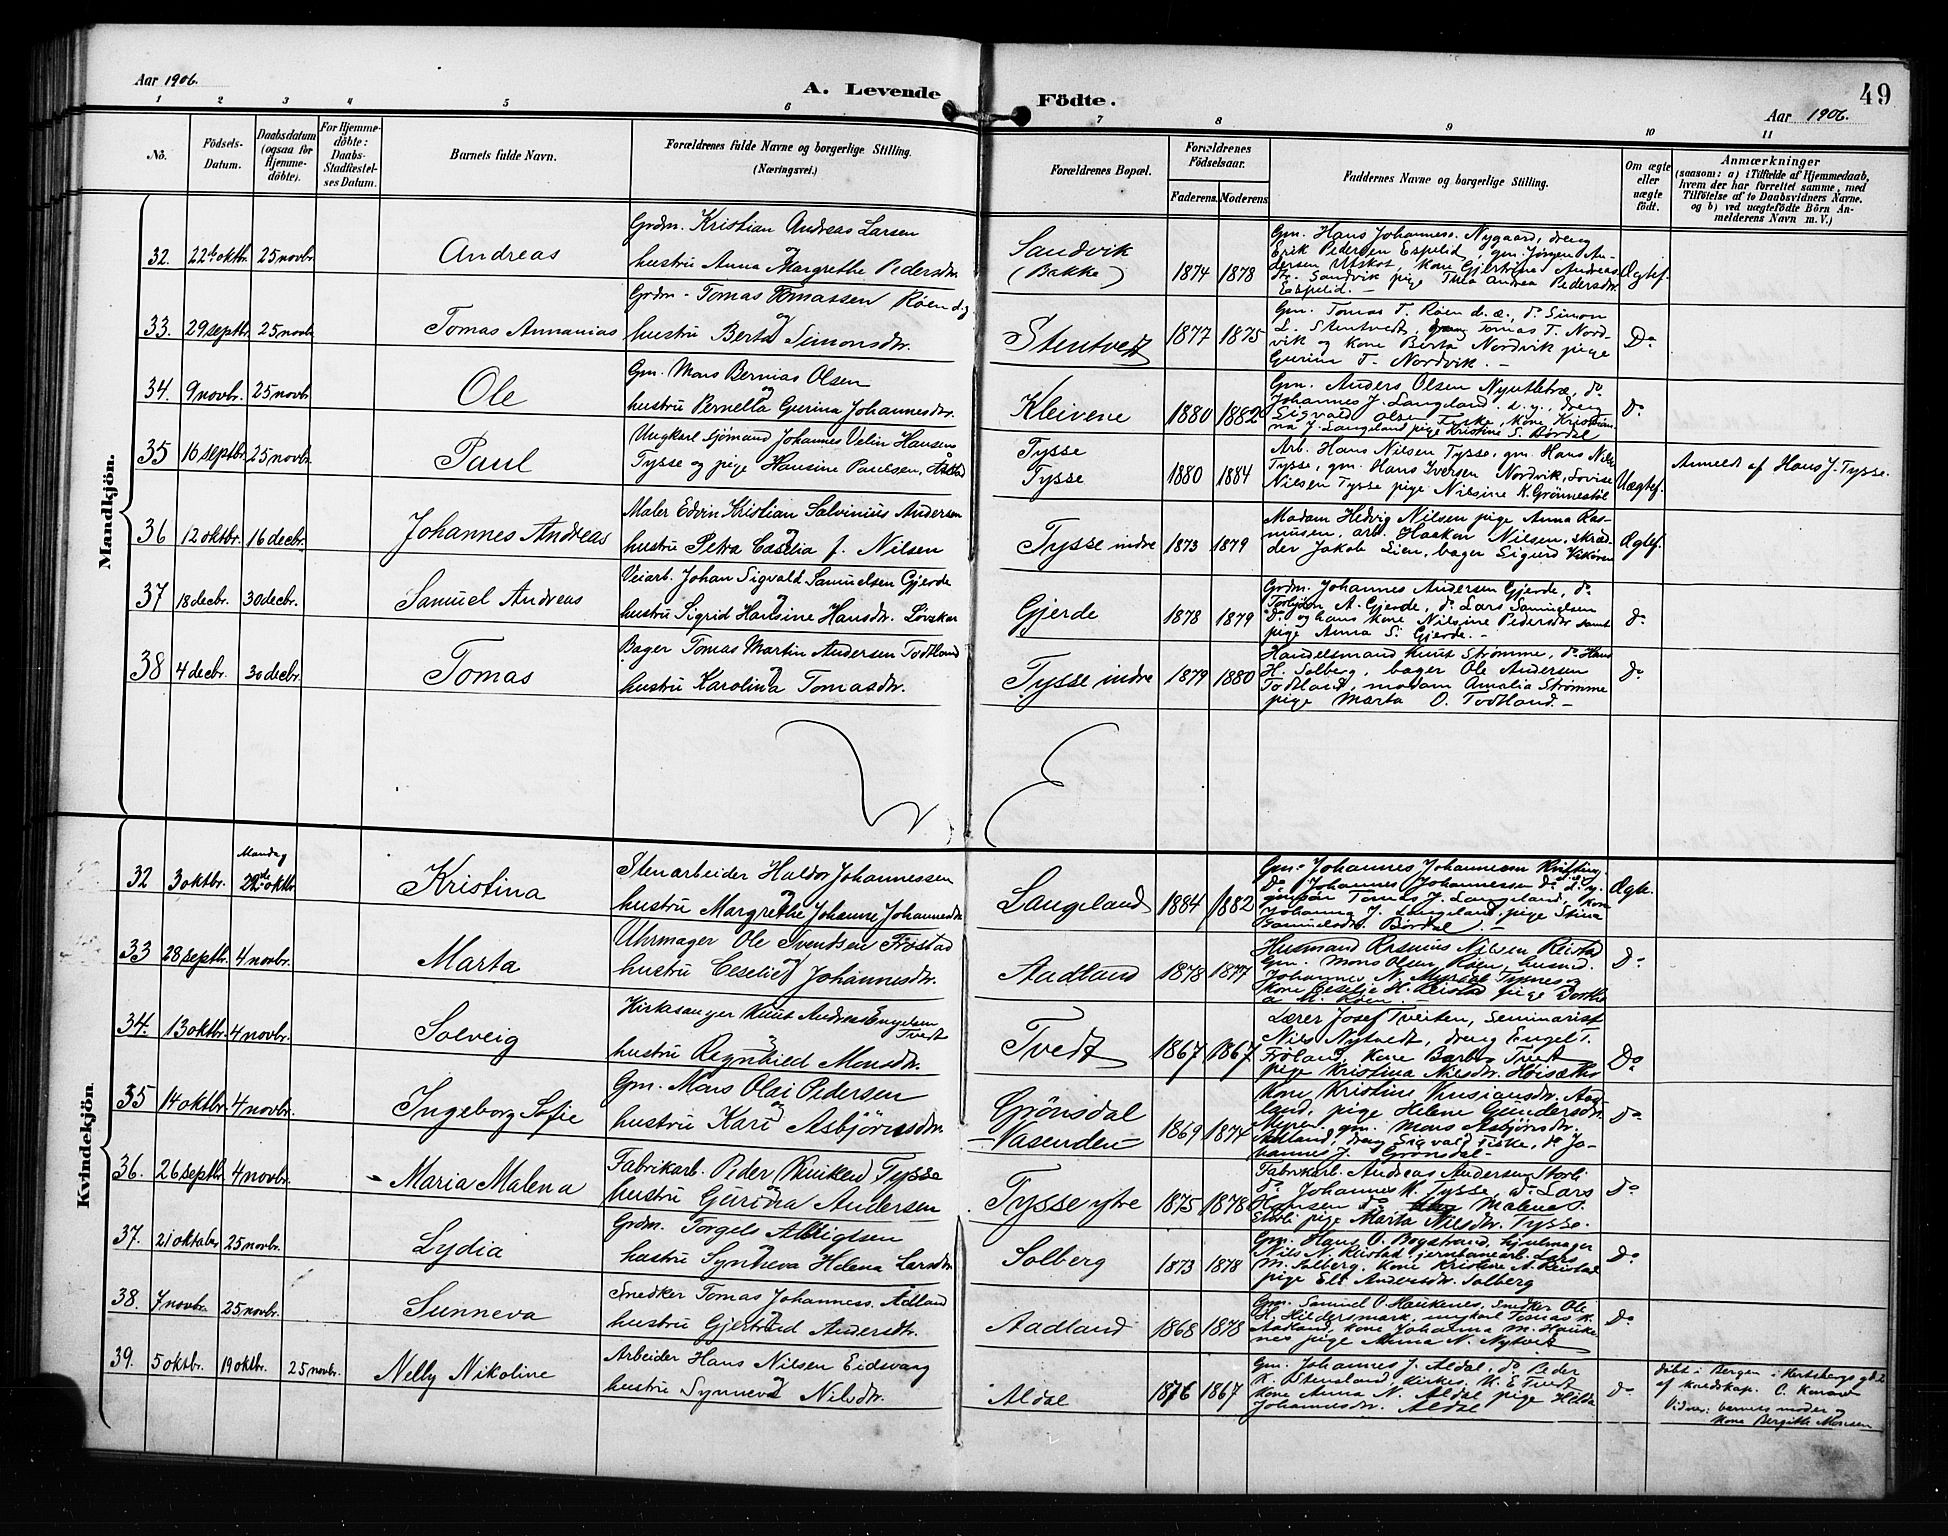 Aar 1906.
A. Levende Födte.
49
Aar 1906.
1 2 3 4 5 6 7 8 9 10 11
No.
Födsels-Datum.
Daabsdatum (ogsaa for Hjemme-döbte).
For Hjemme-döbte: Daabs-Stadfæstel-ses Datum.
Barnets fulde Navn.
Forældrenes fulde Navne og borgerlige Stilling.
(Næringsvei.)
Forældrenes Bopæl.
Forældrenes Födselsaar.
Faderens. Moderens.
Faddernes Navne og borgerlige Stilling.
Om ægte eller uægte födt.
Anmærkninger
(saasom: a) i Tilfælde af Hjemmedaab, hvem der har forrettet samme, med Tilföielse af to Daabsvidners Navne. og b) ved uægtefödte Börn An-melderens Navn m. V.)
Mandkjön.
32. 22de oktbr. 25 novbr. Andreas
Grdm. Kristian Andreas Larsen
og
hustru Anna Margrethe Pedersdtr.
Sandvik
(Bakke)
1874 1878
Gm. Hans Johanness. Nygaard, dreng
Erik Pedersen Espelid, gm. Jörgen An-
dersen Utskot, kone Gjertrine Andreas
dtr. Sandvik pige Thea Andrea Pedersdtr.
Espelid. —
Ægtef.
33. 29 septbr. 25 novbr. Tomas Annanias
Grdm. Tomas Tomassen Røen d.y
og
hustru Berta Simonsdtr.
Stentvedt
1877 1875
Gm. Tomas T. Røen d. æ., do Simon
L. Stentvedt, Tomas T. Nord-
vik og kone Berta Nordvik pige
Gurine T. Nordvik. —
Do
34. 9 novbr. 25 novbr. Ole
Gm. Mons Bernias Olsen
og
hustru Pernella Gurina Johannesdtr.
Kleivene
1880 1882
Gm. Anders Olsen Nyutlebræ, do
Johannes J. Langeland d. y., dreng
Sigvald Olsen Fiske, kone Kristi
na J. Langeland pige Kristine S. Børdal
do
35 16 septbr. 25 novbr. Paul
Ungkarl Sjömand Johannes Velin Hansen
Tysse og pige Hansine Paulsen,
Tysse
Tysse
1880 1884
Arb. Hans Nielsen Tysse, gm. Hans Nils
Tysse, gm. Hans Iversen Nordvik, Lovise
Nilsen Tysse pige Nilsine K. Grönnestöl
Uægtef.
Anmeldt af Hans J. Tysse.
36 12 oktbr. 16 decbr. Johannes Andreas
Maler Edvin Kristian Salvinius Andersen
og
hustru Petra Casilia f. Nilsen
Tysse indre
1873 1879
Madam Hedvig Nilsen pige Anna Ras-
mussen, arb. Haakon Nilsen, skræd-
der Jakob Lien, bager Sigurd Vikören
Ægtef.
37 18 decbr. 30 decbr. Samuel Andreas
Veiarb. Johan Sigvald Samuelsen Gjerde
og
hustru Sigrid Hansine Hansdtr. Løvskar
Gjerde
1878 1879
Grdm. Johannes Andersen Gjerde, do
Torbjörn A. Gjerde, do Lars Samuelsen
do. og hans kone Nilsine Pedersdtr samt
pige Anna S. Gjerde. —
do
38 4 decbr. 30 decbr. Tomas
Bager Tomas Martin Andersen Todtland
og
hustru Karolina Tomasdtr.
Tysse indre
1879 1880
Handelsmand Knut Strømme, do Hans
H. Solberg, bager Ole Andersen
Todtland, madam Amalia Strømme
pige Marta O. Todtland. —
do
Kvindekjön
Mandag
32 3 oktbr. 22de oktbr Kristina
Stenarbeider Haldor Johannessen
og
hustru Margrethe Johanne Johannesdtr.
Langeland
1884 1882
Gm. Johannes Johannessen
Do Johannes Johannessen do d.y.
Tomas J. Langeland, kone
Johanna J. Langeland, pige Stina
Samuelsdtr. Børdal —
Ægte.
33 28 septbr. 4 novbr. Marta
Uhrmager Ole Svendsen Frøstad
og
hustru Ceselie Johannesdtr.
Aadland
1878 1877
Husmand Rasmus Nilsen Reistad
Gm. Mons Olsen Røen, husmd.
Johannes N. Myrdal Tysnes og
kone Ceselie H. Reistad pige Dorthe
a M. Röen —
Do
34. 13 oktbr. 4 novbr. Solveig
Kirkesanger Knut Andreas Engelsen
Tvedt
og
hustru Ragnhild Monsdtr.
Tvedt
1867 1867
Lærer Josef Tveiten, seminarist
Nils Nytvedt, dreng Engel T.
Fröland, kone Barbro Tvedt
pige Kristina Nilsdtr. Höisæther
Do
35 14 oktbr. 4 novbr. Ingeborg Sofie
Gm. Mons Olai Pedersen
og
hustru Kari Asbjörnsdtr.
Grönsdal
—Vasenden—
1869 1874
Kone Kristine Kristiansdtr. Aad-
land, pige Helene Gundersdtr.
Myren, gm. Mons Asbjörnsdtr.
Aadland, dreng Sigvald Fiske, do Jo-
hannes J. Grönsdal —
do
36. 26 septbr. 4 novbr. Maria Malena
Fabrikarb. Peder Knutsen Tysse
og
hustru Gurina Andersen
Tysse ytre
1875 1878
Fabrikarb. Andreas Andersen Storli
do Johannes K. Tysse, do Lars
Hansen do Malene O.
pige Marta Nilsdtr. Tysse.
do
37. 21 oktober 25 novbr. Lydia
Grdm. Torgels Albrigtsen
og
hustru Synneva Helena Larsdtr
Solberg
1873 1878
Gm. Hans O. Bogstrand, hjulmager
Nils N. Reistad, jernbanearb. Lars
M. Solberg, kone Kristine A. Reistad
pige Eli Andersdtr. Solberg
do
38. 7 novbr 25 novbr. Sunneva
Snedker Tomas Johanness. Adland
og
hustru Gjertrud Andersdtr.
Aadland
1868 1878
Gm. Samuel O. Haukenes, snedker Ole
H. Hildersmark, ungkarl Tomas K.
Aadland, kone Johanna M. Hauke
nes pige Anna N. Nytvedt
do
39. 5 oktbr. 19 oktbr. 25 novbr. Nelly Nikoline
Arbeider Hans Nilsen Eidsvang
og
hustru Synneva Nilsdtr.
Aldal
1876 1867
Gm. Johannes J. Aldal, do Peder
K. Østensland, kirkes. K. E Tvedt
kone Anna N. Aldal pige Hilda
Johannesdtr. Aldal
do
döbt i Bergen i Hertsbergs gd 2
af kaldskap. C. Konow
Vidner: barnets moder og
kone Bergitte Monsen